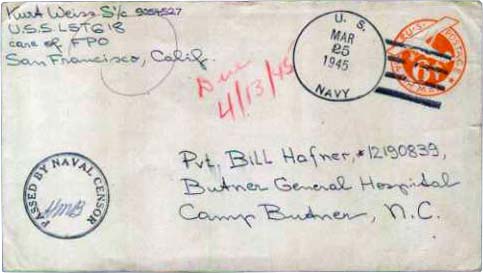 Kurt Weiss S1/c 9054527
U.S.S. LST 618
care of FPO
San Francisco, Calif.
U. S.
MAR
25
1945
NAVY
U.S. POSTAGE
6¢
AIR MAIL
4/13/45
PASSED BY NAVAL CENSOR
Pvt. Bill Hafner, #12190839,
Butner General Hospital
Camp Butner, N.C.